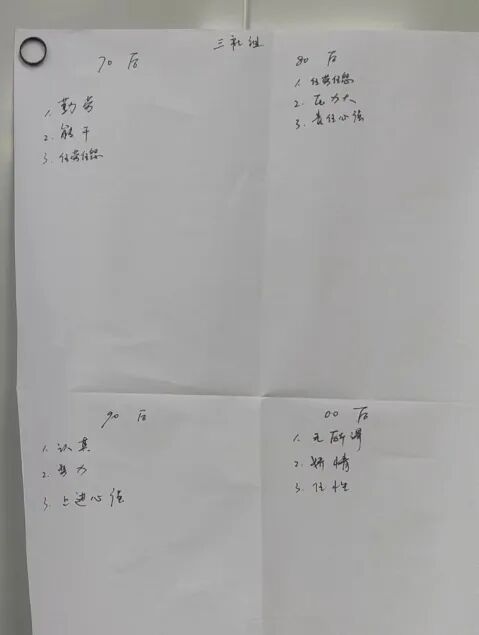 三社组
70 后
1. 勤劳
2. 能干
3. 任劳任怨
80 后
1. 任劳任怨
2. 压力大
3. 责任心强
90 后
1. 认真
2. 努力
3. 上进心强
00 后
1. 无所谓
2. 矫情
3. 任性